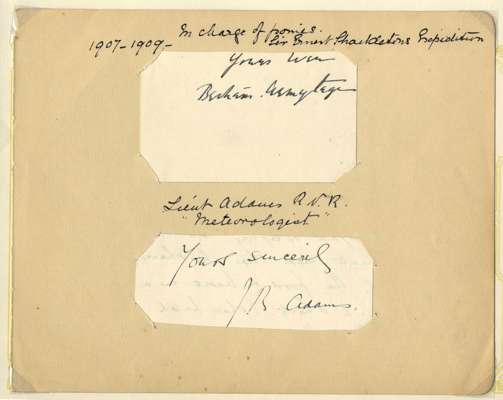 In charge of ponies.
1907-1909- Sir Ernest Shackletons Expedition
Yours
Bertram Armytage
Lieut Adams R.N.R.
"Meteorologist"
Yours sincerely
J B Adams.